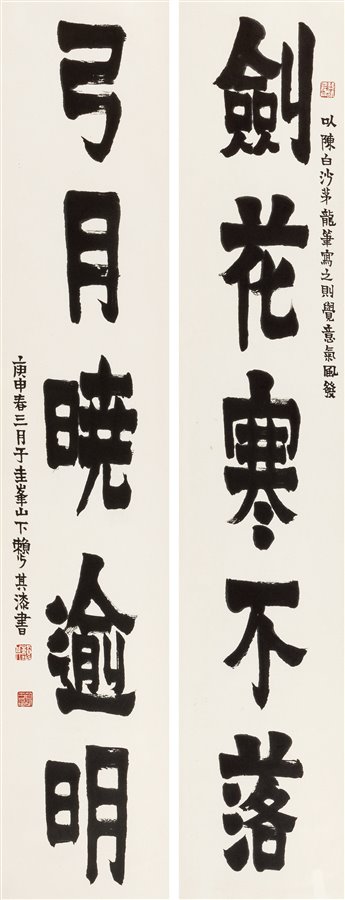 以陳白沙茅龍筆寫之則覺意氣風發
劍花寒不落
弓月曉逾明
庚申春三月于圭峯山下賴少其漆書